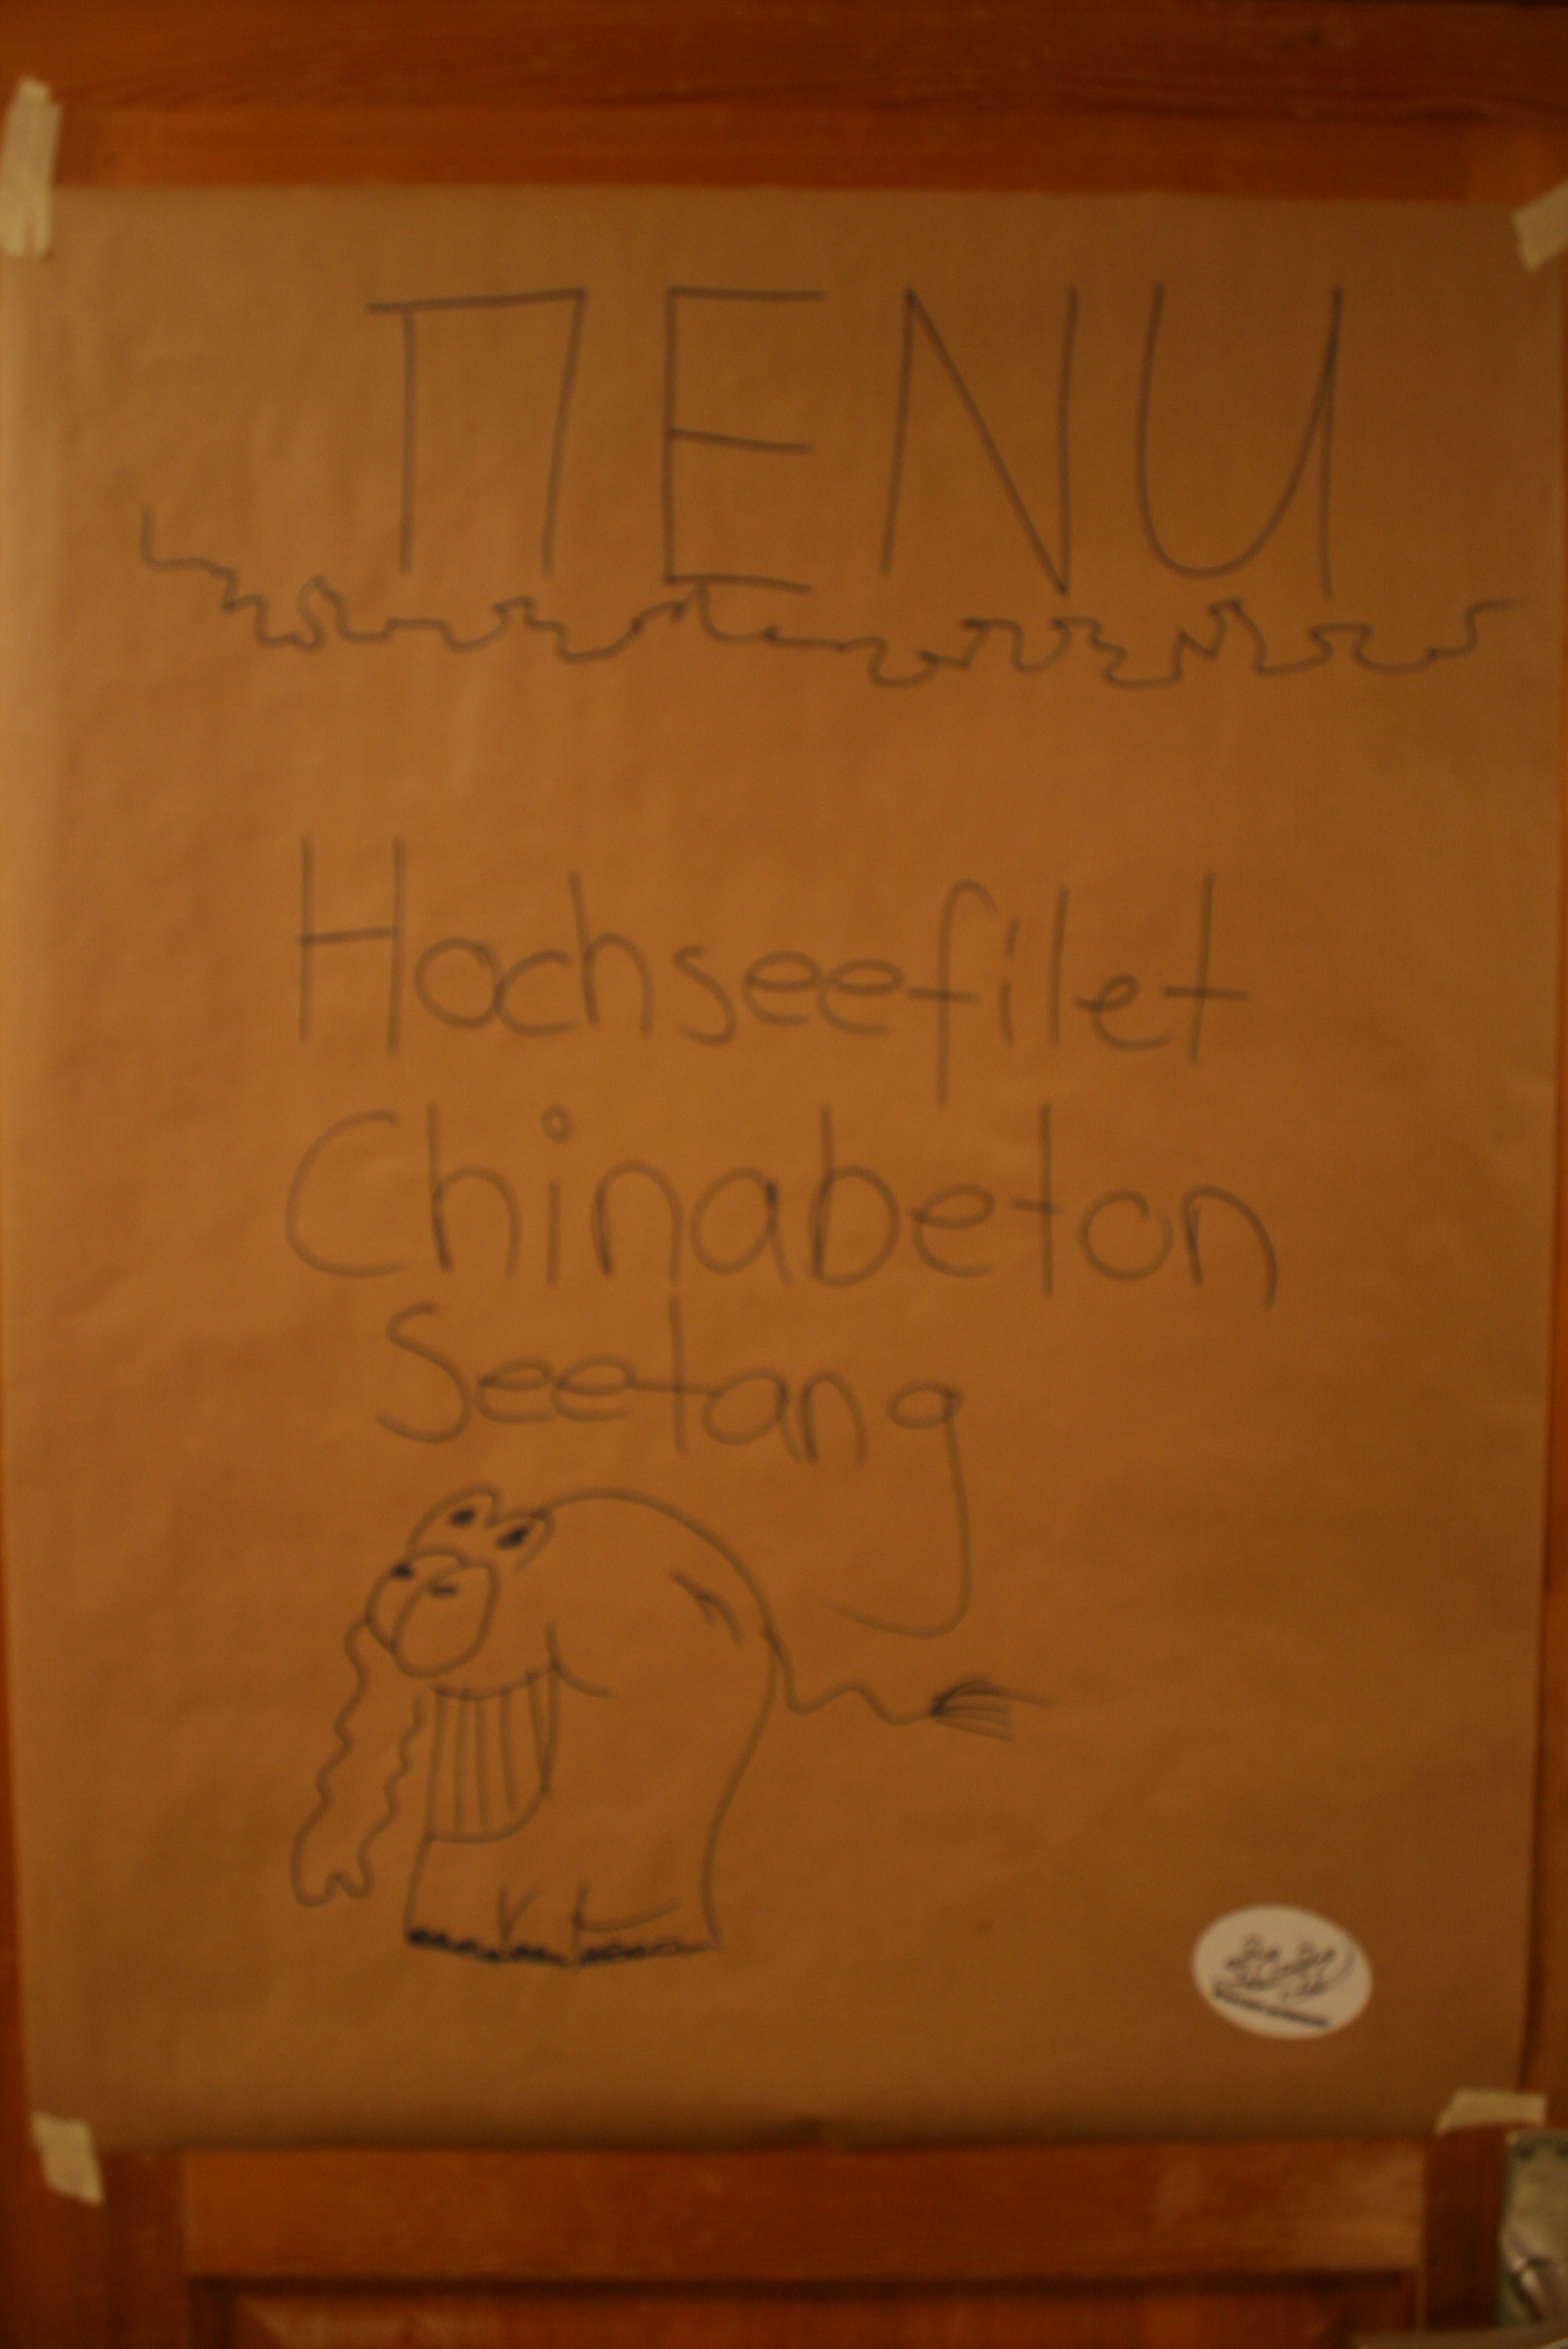 MENU
Hochseefilet
Chinabeton
Seetang